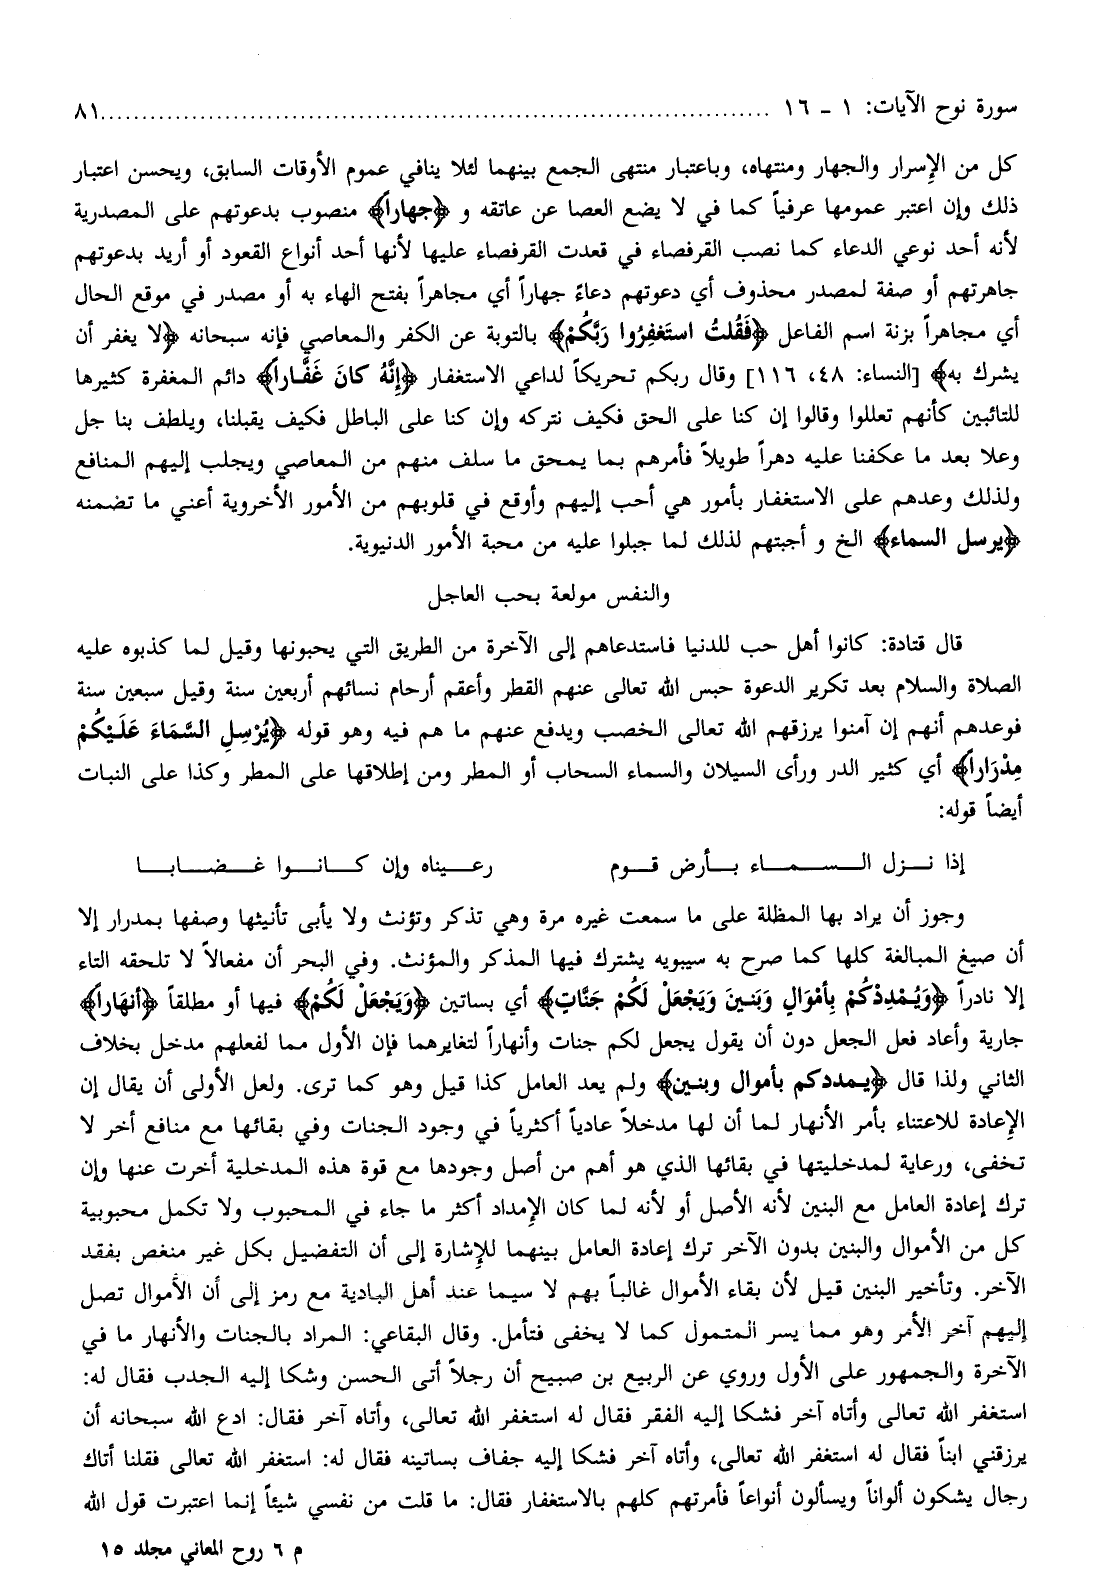 سورة نوح الآيات: ١ ـ ١٦ ................................................................................ ٨١
كل من الإسرار والجهار ومنتهاه، وباعتبار منتهى الجمع بينهما لئلا ينافي عموم الأوقات السابق، ويحسن اعتبار
ذلك وإن اعتبر عمومها عرفياً كما في لا يضع العصا عن عاتقه و ﴿جهاراً﴾ منصوب بدعوتهم على المصدرية
لأنه أحد نوعي الدعاء كما نصب القرفصاء في قعدت القرفصاء عليها لأنها أحد أنواع القعود أو أريد بدعوتهم
جاهرتهم أو صفة لمصدر محذوف أي دعوتهم دعاءً جهاراً أي مجاهراً بفتح الهاء به أو مصدر في موقع الحال
أي مجاهراً بزنة اسم الفاعل ﴿فَقُلتُ استَغفِرُوا رَبَّكُمْ﴾ بالتوبة عن الكفر والمعاصي فإنه سبحانه ﴿لا يغفر أن
يشرك به﴾ [النساء: ٤٨، ١١٦] وقال ربكم تحريكاً لداعي الاستغفار ﴿إِنَّهُ كانَ غَفَّاراً﴾ دائم المغفرة كثيرها
للتائبين كأنهم تعللوا وقالوا إن كنا على الحق فكيف نتركه وإن كنا على الباطل فكيف يقبلنا، ويلطف بنا جل
وعلا بعد ما عكفنا عليه دهراً طويلاً فأمرهم بما يمحق ما سلف منهم من المعاصي ويجلب إليهم المنافع
ولذلك وعدهم على الاستغفار بأمور هي أحب إليهم وأوقع في قلوبهم من الأمور الأخروية أعني ما تضمنه
﴿يرسل السماء﴾ الخ و أجبتهم لذلك لما جبلوا عليه من محبة الأمور الدنيوية.
والنفس مولعة بحب العاجل
قال قتادة: كانوا أهل حب للدنيا فاستدعاهم إلى الآخرة من الطريق التي يحبونها وقيل لما كذبوه عليه
الصلاة والسلام بعد تكرير الدعوة حبس الله تعالى عنهم القطر وأعقم أرحام نسائهم أربعين سنة وقيل سبعين سنة
فوعدهم أنهم إن آمنوا يرزقهم الله تعالى الخصب ويدفع عنهم ما هم فيه وهو قوله ﴿يُرْسِلِ السَّمَاءَ عَلَيْكُمْ
مِدْرَاراً﴾ أي كثير الدر ورأى السيلان والسماء السحاب أو المطر ومن إطلاقها على المطر وكذا على النبات
أيضاً قوله:
إذا نزل السماء بأرض قوم رعيناه وإن كانوا غضابا
وجوز أن يراد بها المظلة على ما سمعت غيره مرة وهي تذكر وتؤنث ولا يأبى تأنيثها وصفها بمدرار إلا
أن صيغ المبالغة كلها كما صرح به سيبويه يشترك فيها المذكر والمؤنث. وفي البحر أن مفعالاً لا تلحقه التاء
إلا نادراً ﴿وَيُمْدِدْكُمْ بِأَمْوَالٍ وَبَنينَ وَيَجْعَلْ لَكُمْ جَنَّاتٍ﴾ أي بساتين ﴿وَيَجْعَلْ لَكُمْ﴾ فيها أو مطلقاً ﴿أنهَاراً﴾
جارية وأعاد فعل الجعل دون أن يقول يجعل لكم جنات وأنهاراً لتغايرهما فإن الأول مما لفعلهم مدخل بخلاف
الثاني ولذا قال ﴿يمددكم بأموال وبنين﴾ ولم يعد العامل كذا قيل وهو كما ترى. ولعل الأولى أن يقال إن
الإعادة للاعتناء بأمر الأنهار لما أن لها مدخلاً عادياً أكثرياً في وجود الجنات وفي بقائها مع منافع أخر لا
تخفى، ورعاية لمدخليتها في بقائها الذي هو أهم من أصل وجودها مع قوة هذه المدخلية أخرت عنها وإن
ترك إعادة العامل مع البنين لأنه الأصل أو لأنه لما كان الإمداد أكثر ما جاء في المحبوب ولا تكمل محبوبية
كل من الأموال والبنين بدون الآخر ترك إعادة العامل بينهما للإشارة إلى أن التفضيل بكل غير منغص بفقد
الآخر. وتأخير البنين قيل لأن بقاء الأموال غالباً بهم لا سيما عند أهل البادية مع رمز إلى أن الأموال تصل
إليهم آخر الأمر وهو مما يسر المتمول كما لا يخفى فتأمل. وقال البقاعي: المراد بالجنات والأنهار ما في
الآخرة والجمهور على الأول وروي عن الربيع بن صبيح أن رجلاً أتى الحسن وشكا إليه الجدب فقال له:
استغفر الله تعالى وأتاه آخر فشكا إليه الفقر فقال له استغفر الله تعالى، وأتاه آخر فقال: ادع الله سبحانه أن
يرزقني ابناً فقال له استغفر الله تعالى، وأتاه آخر فشكا إليه جفاف بساتينه فقال له: استغفر الله تعالى فقلنا أتاك
رجال يشكون ألواناً ويسألون أنواعاً فأمرتهم كلهم بالاستغفار فقال: ما قلت من نفسي شيئاً إنما اعتبرت قول الله
م ٦ روح المعاني مجلد ١٥